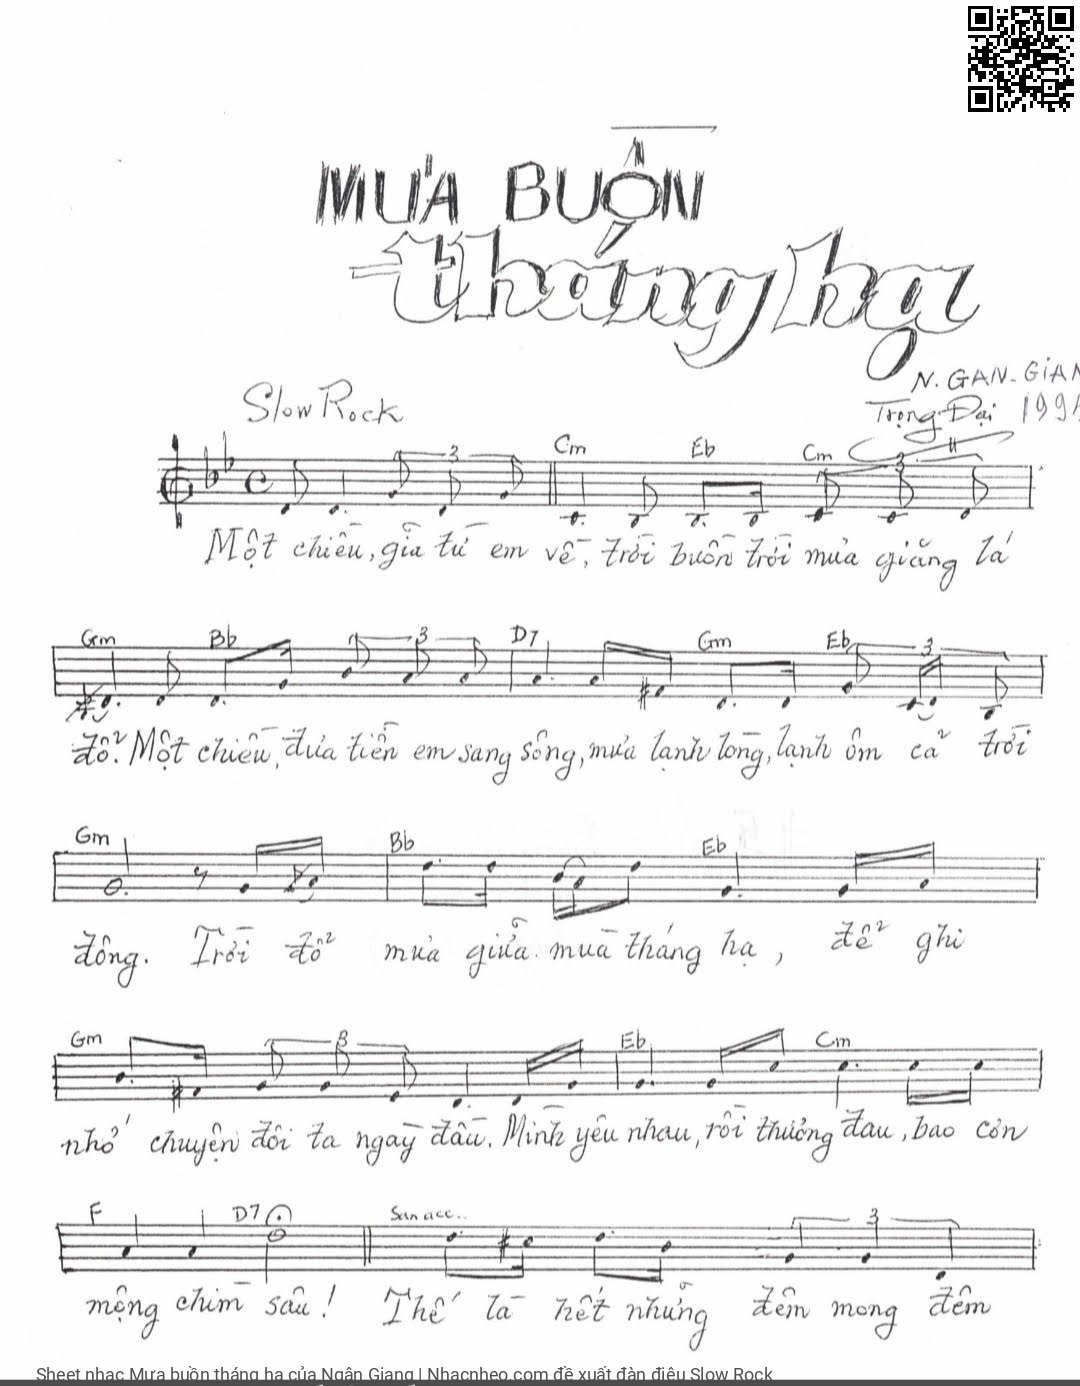 MƯA BUỒN
tháng hạ
N. GAN-GIAN
Slow Rock
Trọng-Đại 199
3
Cm Eb Cm 3
Một chiều, giã từ em về, trời buồn trời mưa giăng lá
Gm Bb 3 D7 Gm Eb 3
đổ. Một chiều, đưa tiễn em sang sông, mưa lạnh lòng, lạnh ôm cả trời
Gm Bb Eb
đông. Trời đổ mưa giữa mùa tháng hạ, để ghi
Gm 3 Eb Cm
nhớ chuyện đôi ta ngày đầu. Mình yêu nhau, rồi thương đau, bao còn
F D7 San acc.. 3
mộng chìm sâu! Thế là hết những đêm mong đêm
Sheet nhạc Mưa buồn tháng hạ của Ngân Giang | Nhacnheo.com đề xuất đàn điệu Slow Rock